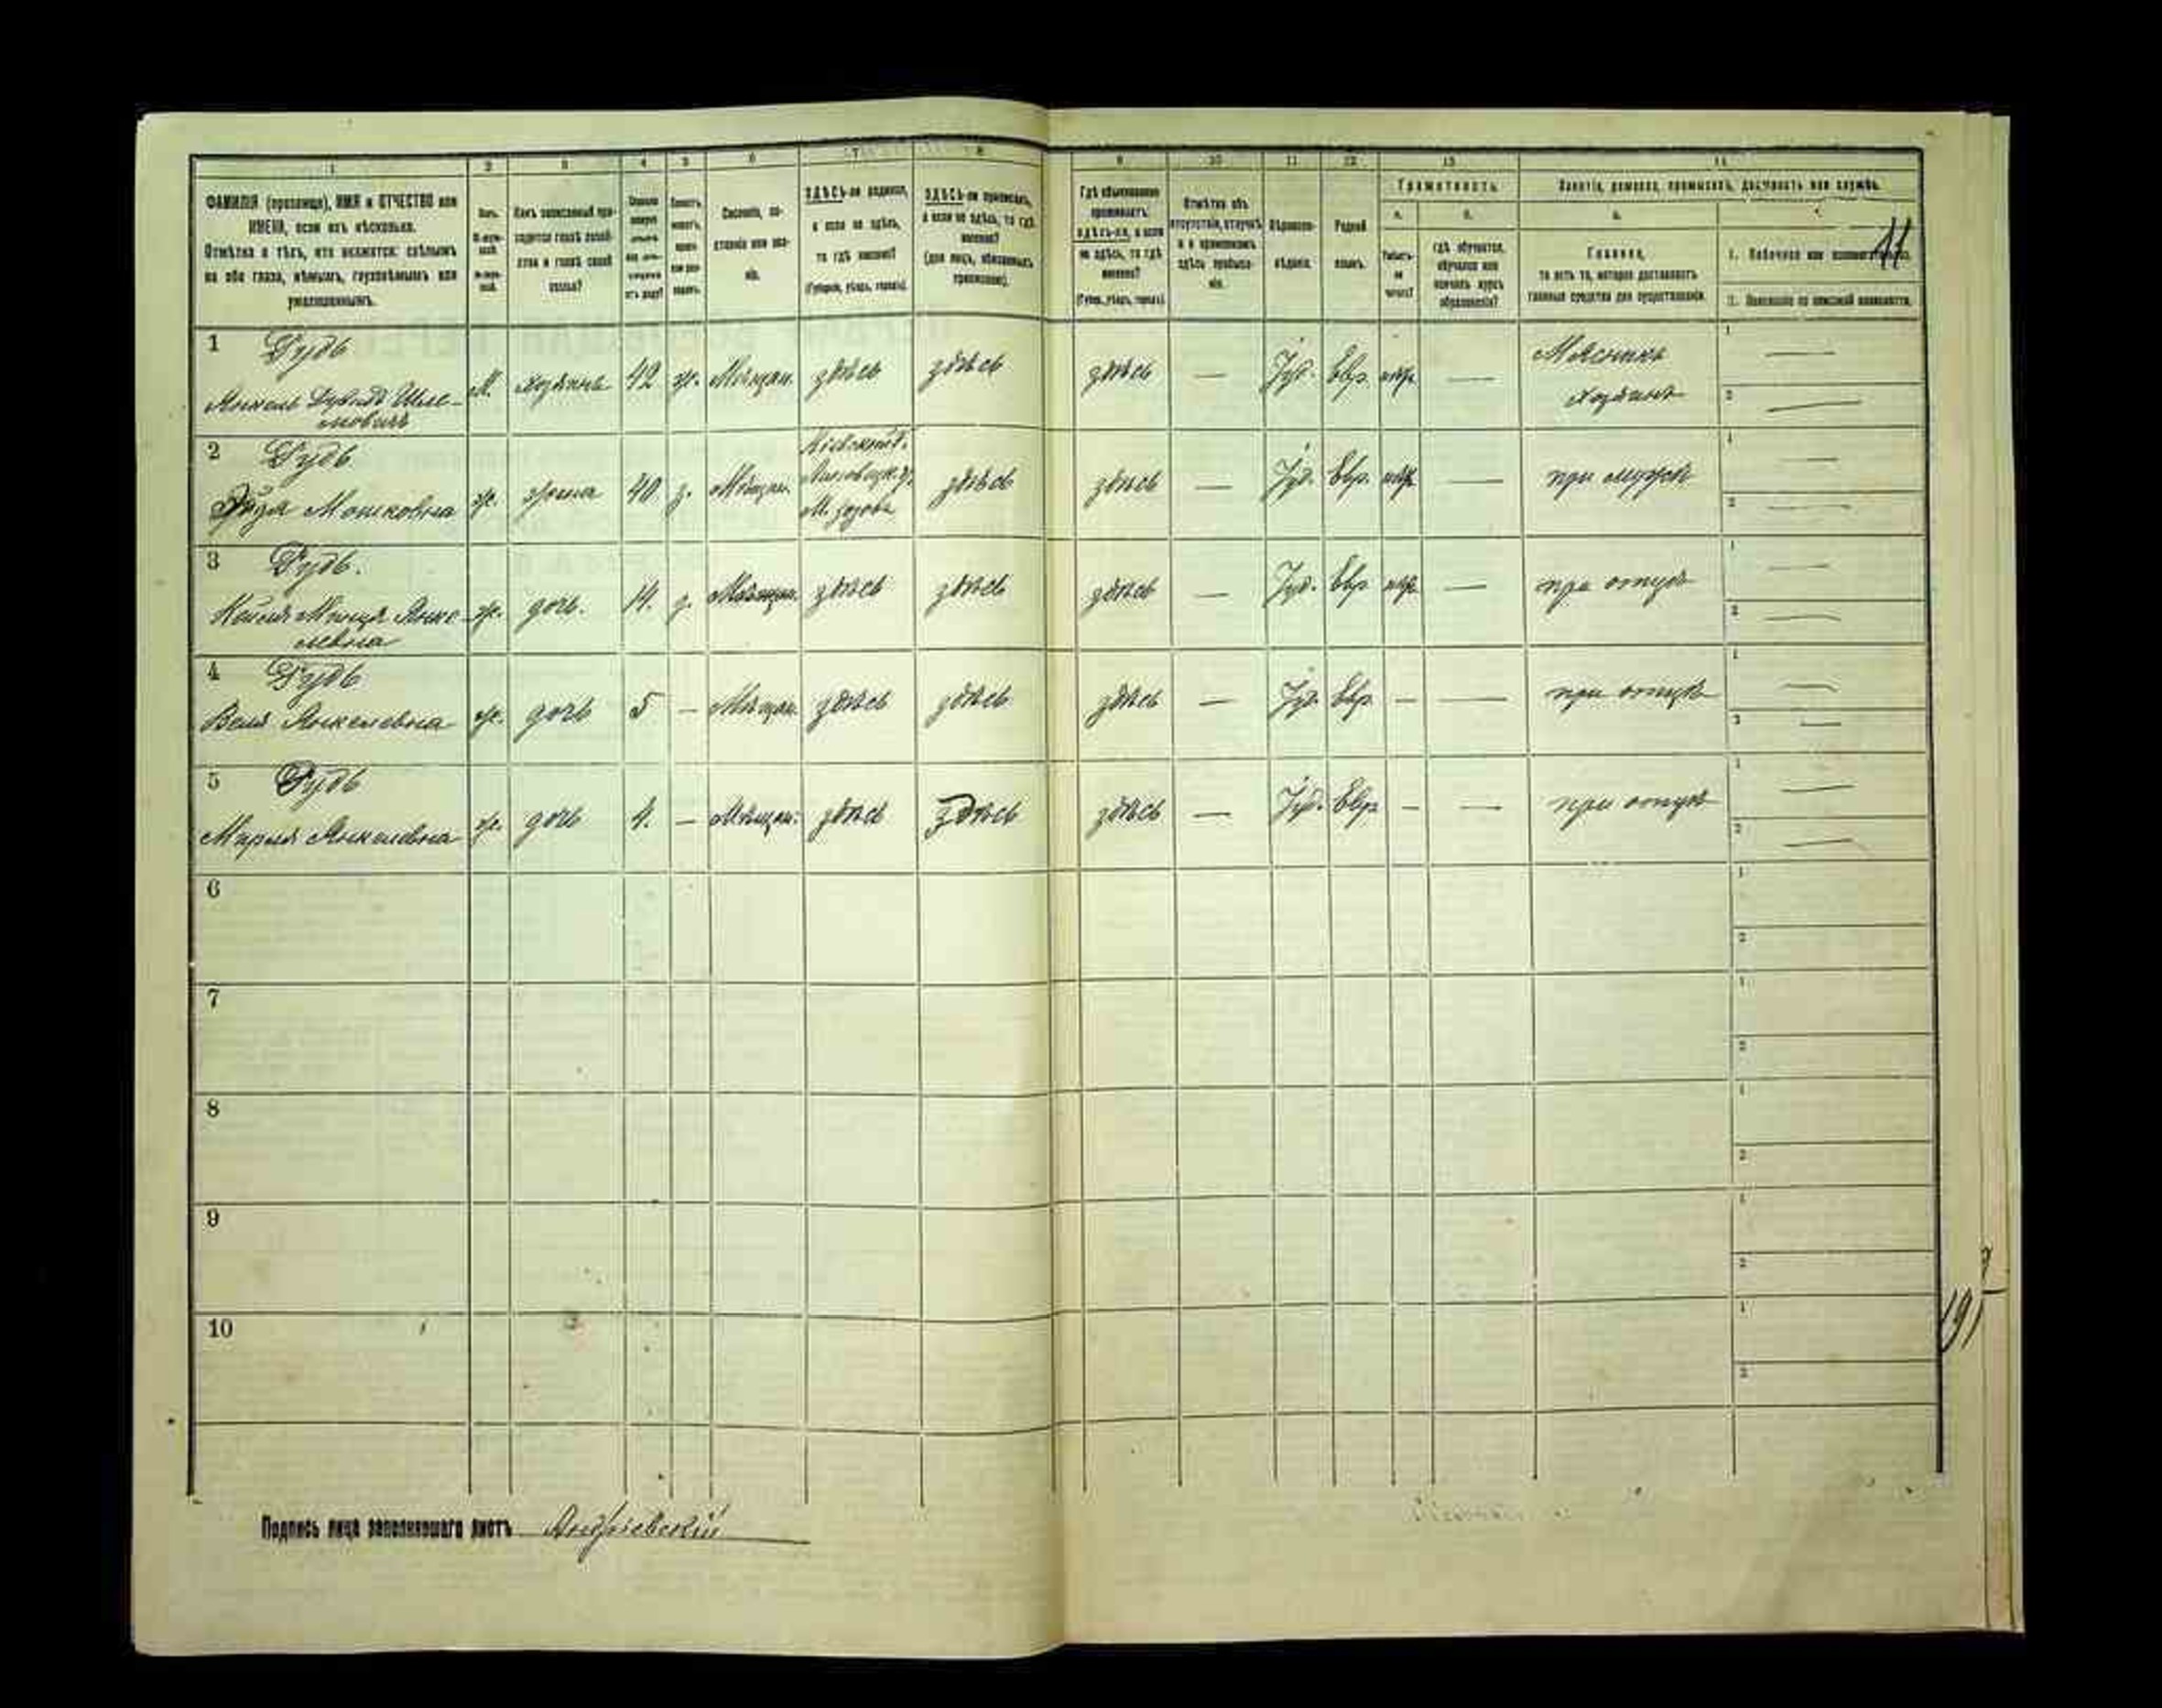 1 2 3 4 5 6 7 8 9 10 11 12 13 14
ФАМИЛІЯ (прозвище), ИМЯ и ОТЧЕСТВО или
ИМЕНА, если ихъ нѣсколько.
Отмѣтка о тѣхъ, кто окажется: слѣпымъ
на оба глаза, нѣмымъ, глухонѣмымъ или
умалишеннымъ.
Полъ.
Какъ записанный при-
ходится главѣ хозяй-
ства и главѣ своей
семьи?
Сословіе, со-
стояніе или зва-
ніе.
ЗДѢСЬ-ли родился,
а если не здѣсь,
то гдѣ именно?
(Губернія, уѣздъ, городъ).
ЗДѢСЬ-ли приписанъ,
а если не здѣсь, то гдѣ
именно?
(для лицъ, обязанныхъ
припискою).
Гдѣ обыкновенно
проживаетъ:
здѣсь-ли, а если
не здѣсь, то гдѣ
именно?
(Губ., уѣздъ, городъ).
Отмѣтка объ
отсутствіи, отлучкѣ
и о временномъ
здѣсь пребыва-
ніи.
Вѣроиспо-
вѣданіе.
Родной
языкъ.
Грамотность.
а. б.
Умѣетъ-
ли
читать?
гдѣ обучается,
обучался или
кончилъ курсъ
образованія?
Занятіе, ремесло, промыселъ, должность или служба.
а.
Главное,
то есть то, которое доставляетъ
главныя средства для существованія.
11
1. Побочное или вспомогательное.
2. Положеніе по воинской повинности.
1 Гудь
Янкель Дувидъ Шле-
мовичъ
М. хозяинъ 42 ж. Мѣщан. здѣсь здѣсь здѣсь — Іуд. Евр. —
Мясникъ
хозяинъ
2 Гудь
Мошковна
ж. жена 40 з. Мѣщан.
Кіевской г.
здѣсь здѣсь — Іуд. Евр. — при мужѣ
3 Гудь.
Янке-
левна
ж. дочь. 14. д. Мѣщан. здѣсь здѣсь здѣсь — Іуд. Евр. — при отцѣ
4 Гудь
Янкелевна
ж. дочь 5 — Мѣщан. здѣсь здѣсь здѣсь — Іуд. Евр. — — при отцѣ
5 Гудь
Янкелевна
ж. дочь 4. — Мѣщан. здѣсь здѣсь здѣсь — Іуд. Евр. — — при отцѣ
6
7
8
9
10
Подпись лица заполнявшаго листъ Андріевскій